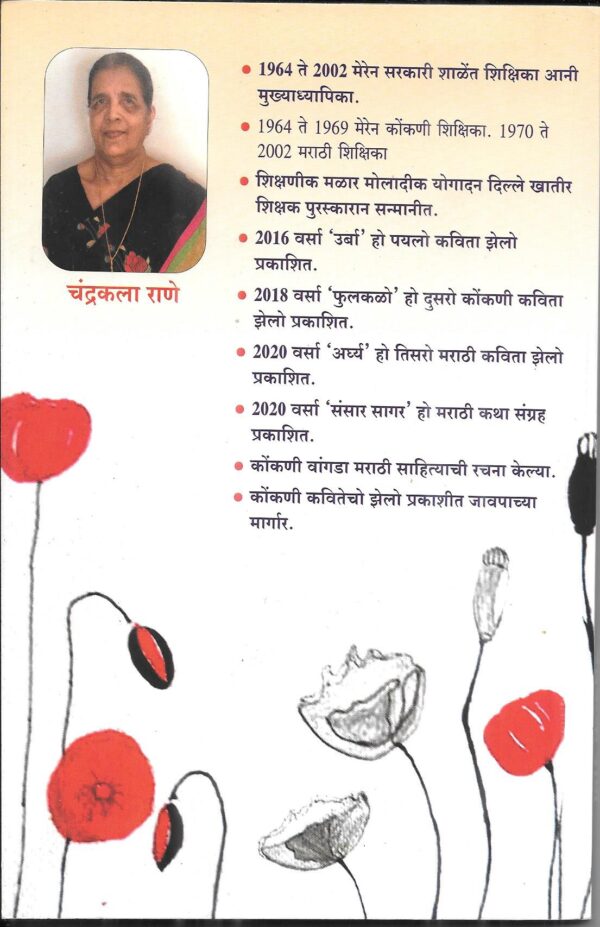 चंद्रकला राणे
• 1964 ते 2002 मेरेन सरकारी शाळेंत शिक्षिका आनी
मुख्याध्यापिका.
• 1964 ते 1969 मेरेन कोंकणी शिक्षिका. 1970 ते
2002 मराठी शिक्षिका
• शिक्षणीक मळार मोलादीक योगादन दिल्ले खातीर
शिक्षक पुरस्कारान सन्मानीत.
• 2016 वर्सा ‘उर्बा’ हो पयलो कविता झेलो
प्रकाशित.
• 2018 वर्सा ‘फुलकळो’ हो दुसरो कोंकणी कविता
झेलो प्रकाशित.
• 2020 वर्सा ‘अर्घ्य’ हो तिसरो मराठी कविता झेलो
प्रकाशित.
• 2020 वर्सा ‘संसार सागर’ हो मराठी कथा संग्रह
प्रकाशित.
• कोंकणी वांगडा मराठी साहित्याची रचना केल्या.
• कोंकणी कवितेचो झेलो प्रकाशीत जावपाच्या
मार्गार.